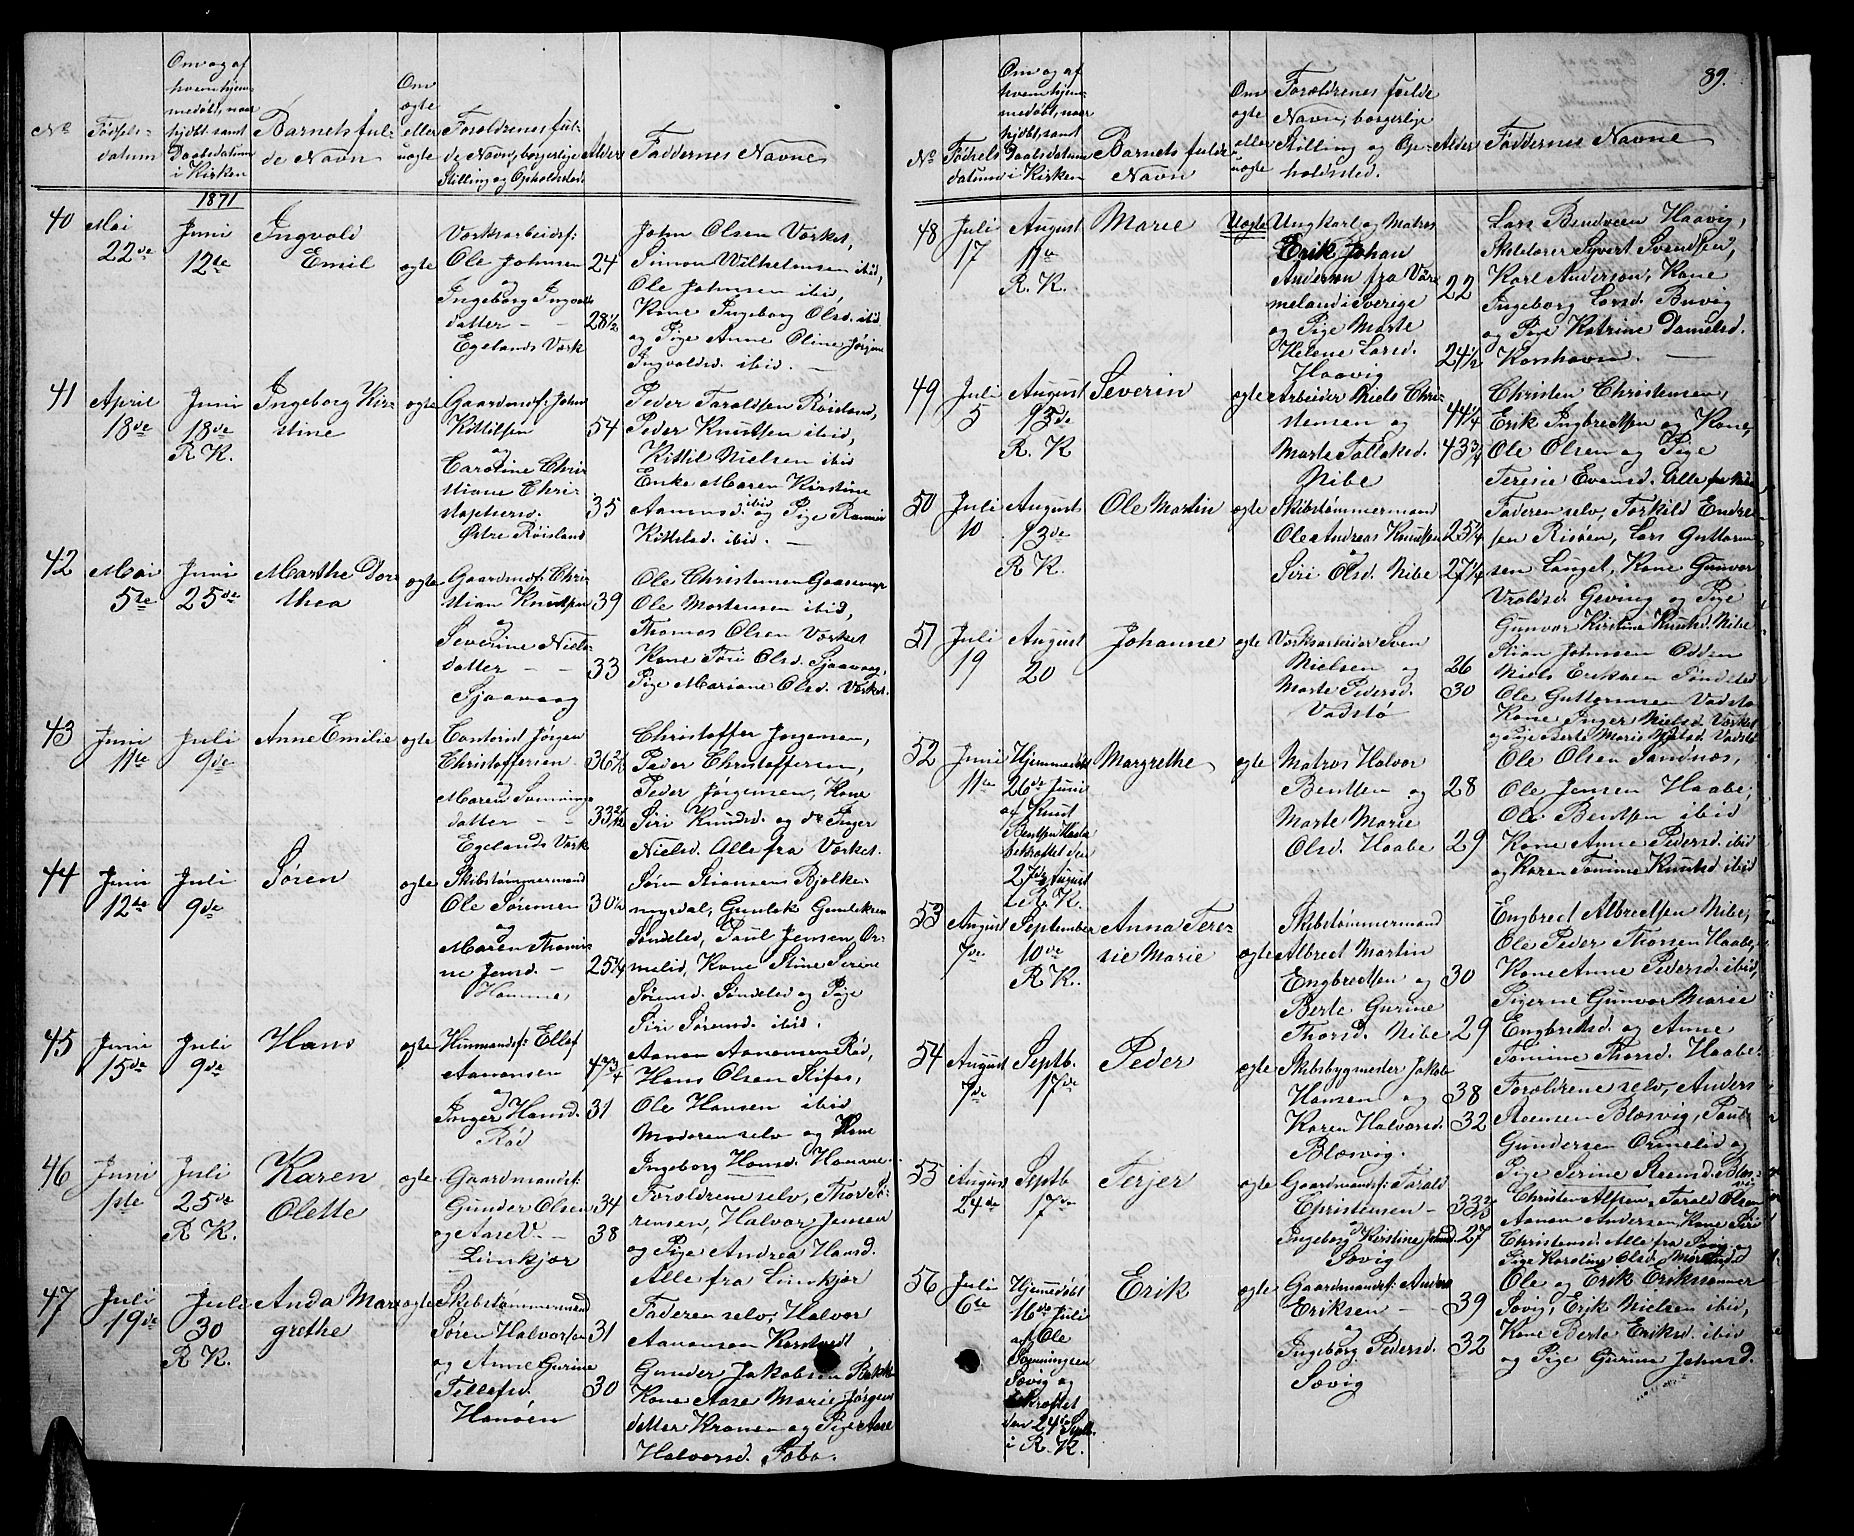 No
Fødsels-
datum
Om og af
hvem hjem-
medøbt, naar
hjdbt. samt
Daabsdatum
i Kirken
Barnets ful-
de Navn
Om
ægte
eller
uægte
Forældrenes ful-
de Navn, borgerlige
Stilling og Opholdsted.
Alder
Faddernes Navne
1871
40
Mai
22de
Juni
12te
Ingvald
Emil
ægte
Værksarbeidsf:
Ole Johnsen
og
Ingeborg Ingvalds
datter
Egelands Værk
24
28½
John Olsen Værket,
Simon Wilhelmsen ibid,
Ole Johnsen ibid,
Kone Ingeborg Olsd. ibid
og Pige Anne Oline Jørgine
Ingvaldsd. ibid.
41
April
18de
Juni
18de
R K.
Ingeborg Kir-
stine
ægte
Gaardmdf: John
Kittilsen
og
Caroline Chri
stiane Chri
stophersd.
Østre Røisland
54
35
Peder Taraldsen Røisland,
Peder Knudsen ibid,
Kittil Nielsen ibid
Enke Maren Kirstine
Aanensd. ibid og Pige
Kittelsd. ibid.
42
Mai
5te
Juni
25de
Marthe Doro
thea
ægte
Gaardmdf: Chri
stian Knudsen
og
Severine Niels-
datter
Sjaavaag
39
33
Ole Christensen
Ole Mortensen ibid,
Thomas Olsen Værket
Kone Tori Olsd. Sjaavaag,
Pige Mariane Olsd. Værket.
43
Juni
11te
Juli
9de
Anne Emilie
ægte
Contorist Jørgen
Christoffersen
og
Maren Sønnings
datter
Egelands Værk
Christoffer Jørgensen,
Peder Christoffersen,
Peder Jørgensen, Kone
Siri Knudsd. og do Inger
Nielsd. Alle fra Værket.
44
Juni
12te
Juli
9de
Søren
ægte
Skibstømmermand
Ole Sørensen
og
Maren Thomi-
ne Jensd.
Hammen,
30¼
25¼
Søren Stiansen Bjelke-
myrdal, Gunlek Gunleksen
Søndeled, Paul Jensen Or-
melid, Kone Stine Serine
Sørensd. Søndeled og Pige
Siri Sørensd. ibid.
45
Juni
15de
Juli
9de
Hans
ægte
Huusmandsf: Ellef
Aanonsen
og
Inger Hansd.
Rød
47¾
31
Aanon Aanonsen Rød,
Hans Olsen
Ole Hansen ibid
Moderen selv og Kone
Ingeborg Hansd. Hammen.
46
Juni
1ste
Juli
25de
R K.
Karen
Olette
ægte
Gaardmandsf:
Gunder Olsen
og Aase
Limkjær
34
38
Forældrene selv, Thor Sø-
rensen, Halvor Jensen
og Pige Andrea Hansd.
Alle fra Limkjær
47
Juli
19de
Juli
30
R K.
Anda Mar
grethe
ægte
Skibstømmermand
Søren Halvorsen
og Anne Gurine
Tellefsd.
Hanøen
31
30
Faderen selv, Halvor
Aanonsen
Gunder Jakobsen
Kone Aase Marie Jørgens
datter Kranen og Pige Aase
Halvorsd.
89.
No
Fødsels
datum
Om og af
hvem hjem
medøbt, naar
hjdbt. samt
Daabsdatum
i Kirken
Barnets fulde
Navn
Om
ægte
eller
uægte
Forældrenes fulde
Navn, borgerlige
Stilling og Op-
holdsted.
Alder
Faddernes Navne
48
Juli
17
August
11te
R. K.
Marie
Uægte
Ungkarl og Matros
Erik Johan
Anderson fra Vär
meland i Sverige
og Pige Marte
Helene Larsd.
Haavig
22
24½
Lars Bendixen Haavig,
Skibfører Syvert Svendsen,
Karl Anderson, Kone
Ingeborg Larsd. Buvig
og Pige Katrine Danielsd.
Korshavn.
49
Juli
5
August
13de
R. K
Severin
ægte
Arbeider Niels Chri-
stensen og
Marte Tallaksd.
Nibe
44¼
43¾
Christen Christensen,
Erik Ingbretsen og Kone,
Ole Olsen og Pige
Teresie Evensd. Alle fra Nibe
50
Juli
10
August
13de
R K.
Ole Martin
ægte
Skibstømmermand
Ole Andreas Knudsen
og
Siri Olsd. Nibe
25¼
27¼
Faderen selv, Torkild Endre
sen Risøen, Lars Guttorm
sen Langet, Kone Gunvor
Vraldsd. Geving og Pige
Gunvor Kirstine Knudsd. Nibe
51
Juli
19
August
20
Johanne
ægte
Værksarbeider Sven
Nielsen og
Marte Pedersd.
Vadstø
26
30
Stian Johnsen Odden
Niels Eriksen Søndeled
Ole Guttormsen Vadstø
Kone Inger Nielsd. Værket
og Pige Berte Marie Nielsd. Vadstø
52
Juni
11te
Hjemmedøbt
26de Juni
af Knud
Bentsen Haabe
bekræftet den
27de August
i R. K.
Margrethe
ægte
Matros Halvor
Bentsen og
Marte Marie
Olsd. Haabe
28
29
Ole Olsen Sandnæs,
Ole Jensen Haabe,
Ole Bentsen ibid
Kone Anne Pedersd. ibid
og Karen Tomine Knudsd. ibid
53
August
7de
September
10de
R K.
Anna Tere-
sie Marie
ægte
Skibstømmermand
Albret Martin
Engbretsen og
Berte Gurine
Thorsd. Nibe
30
29
Engbret Albretsen Nibe,
Ole Peder Thorsen Haabe,
Kone Anne Pedersd. ibid,
Pigerne Gunvor Marie
Engbretsd. og Anne
Tomine Thorsd. Haabe.
54
August
7de
Septb.
17de
Peder
ægte
Skibsbygmester Jakob
Hansen og
Karen Halvorsd.
Blæsvig.
38
32
Forældrene selv, Anders
Blæsvig, Paul
Gundersen Ormelid og
Pige Serine
55
August
24de
Septb
17de
Terjer
ægte
Gaardmandsf: Tarald
Christensen
og
Ingeborg Kirstine Johnsd.
Søvig
27
Christen Alfsen, Tarald Olsen
Aanon Andersen, Kone Siri
Christensd. Alle fra Søvig og
Pige Karoline Olsd.
56
Juli
6te
Hjemmedøbt
16de Juli
af Ole
Sønningsen
Søvig og
bekræftet
den 24de Septb.
i R. K.
Erik
ægte
Gaardmandsf: Anders
Eriksen
og
Ingeborg Pedersd.
Søvig
39
32
Ole og Erik Erikssønner
Søvig, Erik Nielsen ibid,
Kone Berte Eriksd. ibid
og Pige Gurine Johnsd.